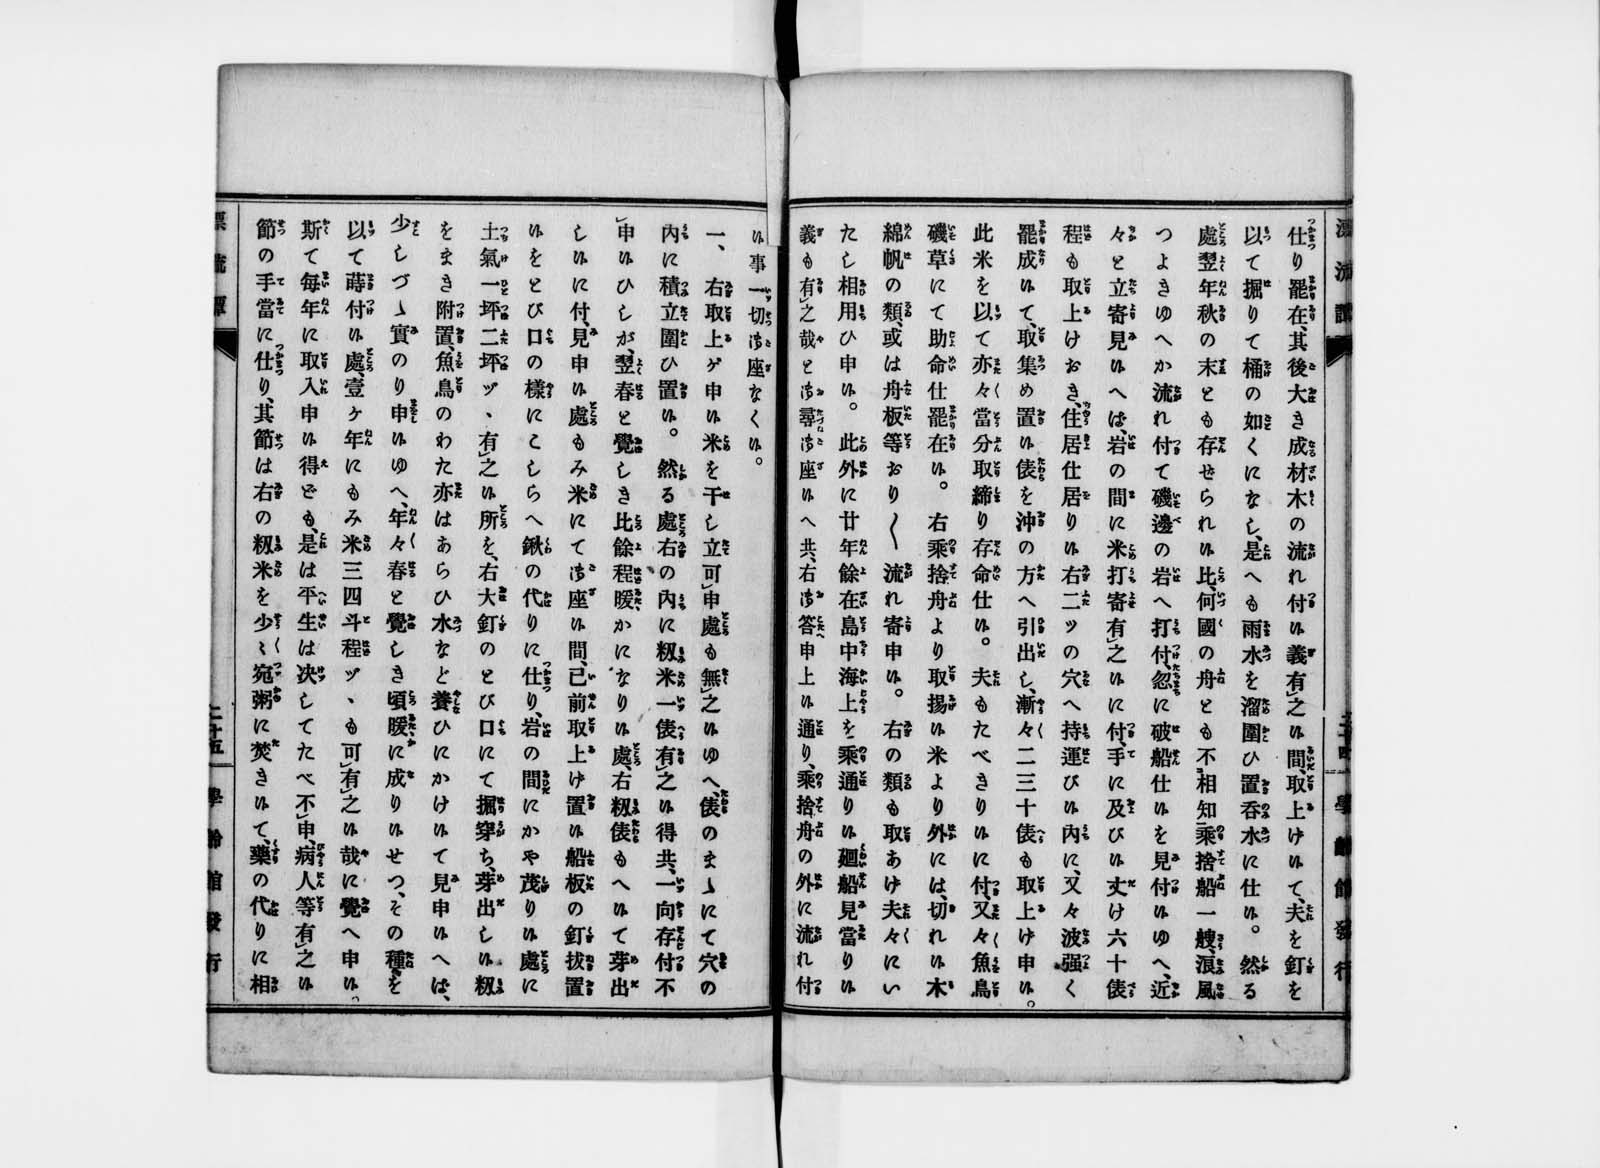 仕り罷在、其後大き成材木の流れ付候義有之候間、取上け候て、夫を釘を
以て掘りて桶の如くになし、是へも雨水を溜圍ひ置呑水に仕候。然る
處翌年秋の末とも存せられ候比、何國の舟とも不相知乘捨船一艘、浪風
つよきゆへか流れ付て磯邊の岩へ打付、忽に破船仕候を見付候ゆへ、近
々と立寄見候へは、岩の間に米打寄有之候に付、手に及び候丈け六十俵
程も取上けおき、住居仕居り候右二ッの穴へ持運び候内に、又々波强く
罷成候て、取集め置候俵を沖の方へ引出し、漸々二三十俵も取上け申候。
此米を以て亦々當分取締り存命仕候。夫もたべきり候に付、又々魚鳥
磯草にて助命仕罷在候。右乘捨舟より取揚候米より外には、切れ候木
綿帆の類、或は舟板等おり〱流れ寄申候。右の類も取あけ夫々にい
たし相用ひ申候。此外に廿年餘在島中海上を乘通り候廻船見當り候
義も有之哉と御尋御座候へ共、右御答申上候通り、乘捨舟の外に流れ付
候事一切御座なく候。
一、右取上ゲ申候米を干し立可申處も無之候ゆへ、俵のまゝにて穴の
內に積立圍ひ置候。然る處右の內に籾米一俵有之候得共、一向存付不
申候ひしが、翌春と覺しき比餘程暖かになり候處、右籾俵もへ候て芽出
し候に付、見申候處もみ米にて御座候間、已前取上け置候船板の釘拔置
候をとび口の樣にこしらへ鍬の代りに仕り、岩の間にかや茂り候處に
土氣一坪二坪ヅヽ有之候所を、右大釘のとび口にて掘穿ち、芽出し候籾
をまき附置、魚鳥のわた亦はあらひ水なと養ひにかけ候て見申候へば、
少しづゝ實のり申候ゆへ、年々春と覺しき頃暖に成り候せつ、その種を
以て蒔付候處、壹ヶ年にもみ米三四斗程ヅヽも可有之候哉に覺へ申候。
斯て每年に取入申候得ども、是は平生は决してたべ不申、病人等有之候
節の手當に仕り、其節は右の籾米を少〻宛粥に焚き候て、藥の代りに相
漂流譚
二十五
學齡館發行